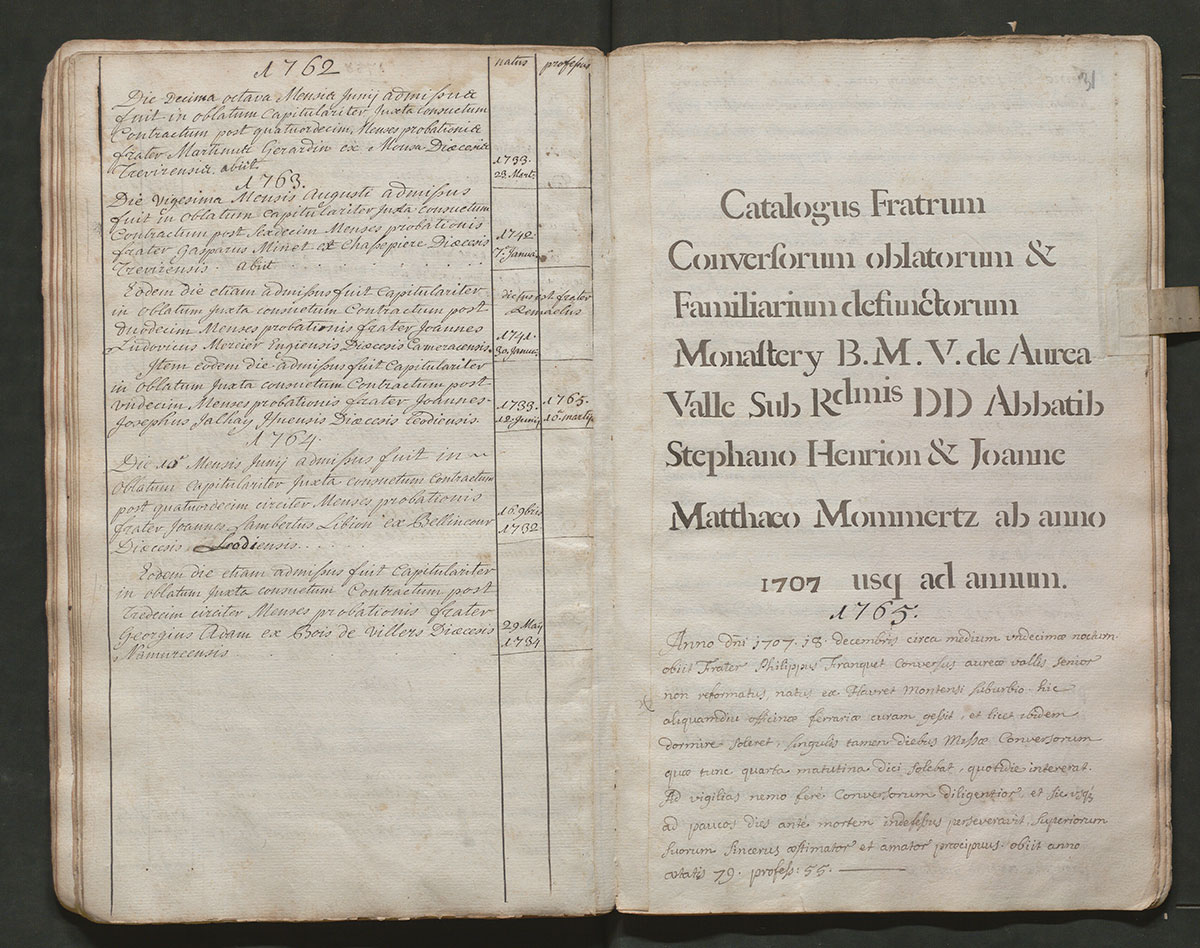 1762
natus
professus
Die Decima octava Mensis Junij admissus
fuit in oblatum Capitulariter Juxta consuetum
Contractum post quatuordecim Menses probationis
frater Martinus Gerardin ex Mousa Diœcesis
Trevirensis. abiit.
1733.
23 Mart:
1763.
Die vigesima Mensis Augusti admissus
fuit in oblatum Capitulariter Juxta consuetum
Contractum post sexdecim Menses probationis
frater Gasparus Minet ex Chassepiere Diœcesis
Trevirensis. abiit
1742.
7. Janua:
Eodem die etiam admissus fuit Capitulariter
in oblatum Juxta consuetum Contractum post
Duodecim Menses probationis frater Joannes
Ludovicus Mercier Engiensis Diœcesis Cameracensis.
dictus est frater
Remaclus
1741.
30. Janua:
Item eodem die admissus fuit Capitulariter
in oblatum Juxta consuetum Contractum post
Vndecim Menses probationis frater Joannes-
Josephus Jalhay Huensis Diœcesis Leodiensis.
1733.
12. Junij
1765.
10. martij
1764.
Die 10ª Mensis Junij admissus fuit in
oblatum Capitulariter Juxta consuetum Contractum
post quatuordecim circiter Menses probationis
frater Joannes Lambertus Libion ex Bellincour
Diœcesis Leodiensis
16. 9bris
1732
Eodem die etiam admissus fuit Capitulariter
in oblatum Juxta consuetum Contractum post
Tredecim circiter Menses probationis frater
Georgius Adam ex Bois de Villers Diœcesis
Namurcensis
29 Maij
1734
31
Catalogus Fratrum
Conversorum oblatorum &
Familiarium defunctorum
Monastery B. M. V. de Aurea
Valle Sub Rdmis DD Abbatib
Stephano Henrion & Joanne
Matthaeo Mommertz ab anno
1707 usq ad annum.
1765.
Anno dñi 1707. 18. decembris circa medium vndecimæ noctum
obiit Frater Philippus Franquet Conversus aureæ vallis senior
non reformatus, natus ex Havret Montensi suburbio. hic
aliquamdiu officinæ ferrariæ curam gessit, et licet ibidem
dormire soleret, singulis tamen diebus Missæ Conversorum
quæ tunc quarta matutina dici solebat, quotidie intererat.
Ad vigilias nemo ferè Conversorum diligentior, et sic usq
ad paucos dies ante mortem indefessus perseveravit, superiorum
suorum sincerus æstimator et amator præcipuus. obiit anno
ætatis 79. profess: 55.